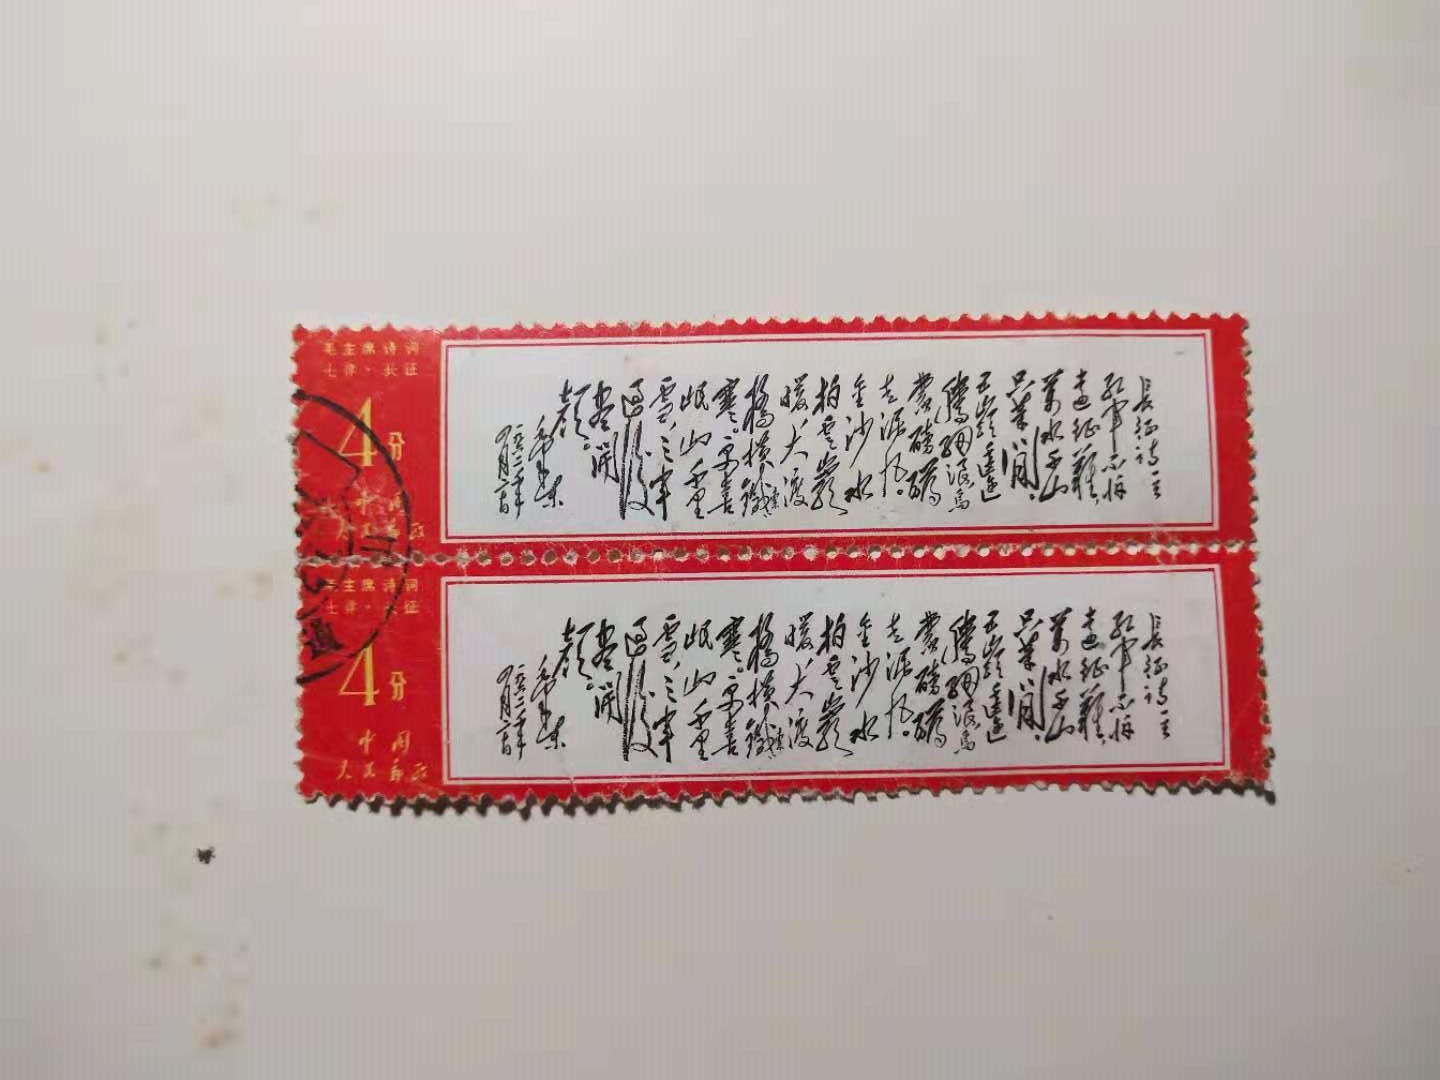 毛主席诗词
七律·长征
4分
中国
人民邮政
長征诗一首
红军不怕
远征難，
万水千山
只等閒。
五嶺逶迤
腾细浪，乌
蒙磅礴
走泥丸。
金沙水
拍雲崖
暖，大渡
橋横鐵索
寒。更喜
岷山千里
雪，三军
过後
尽開
颜。
毛泽东
一九六二年
四月廿日
毛主席诗词
七律·长征
4分
中国
人民邮政
長征诗一首
红军不怕
远征難，
万水千山
只等閒。
五嶺逶迤
腾细浪，乌
蒙磅礴
走泥丸。
金沙水
拍雲崖
暖，大渡
橋横鐵索
寒。更喜
岷山千里
雪，三军
过後
尽開
颜。
毛泽东
一九六二年
四月廿日